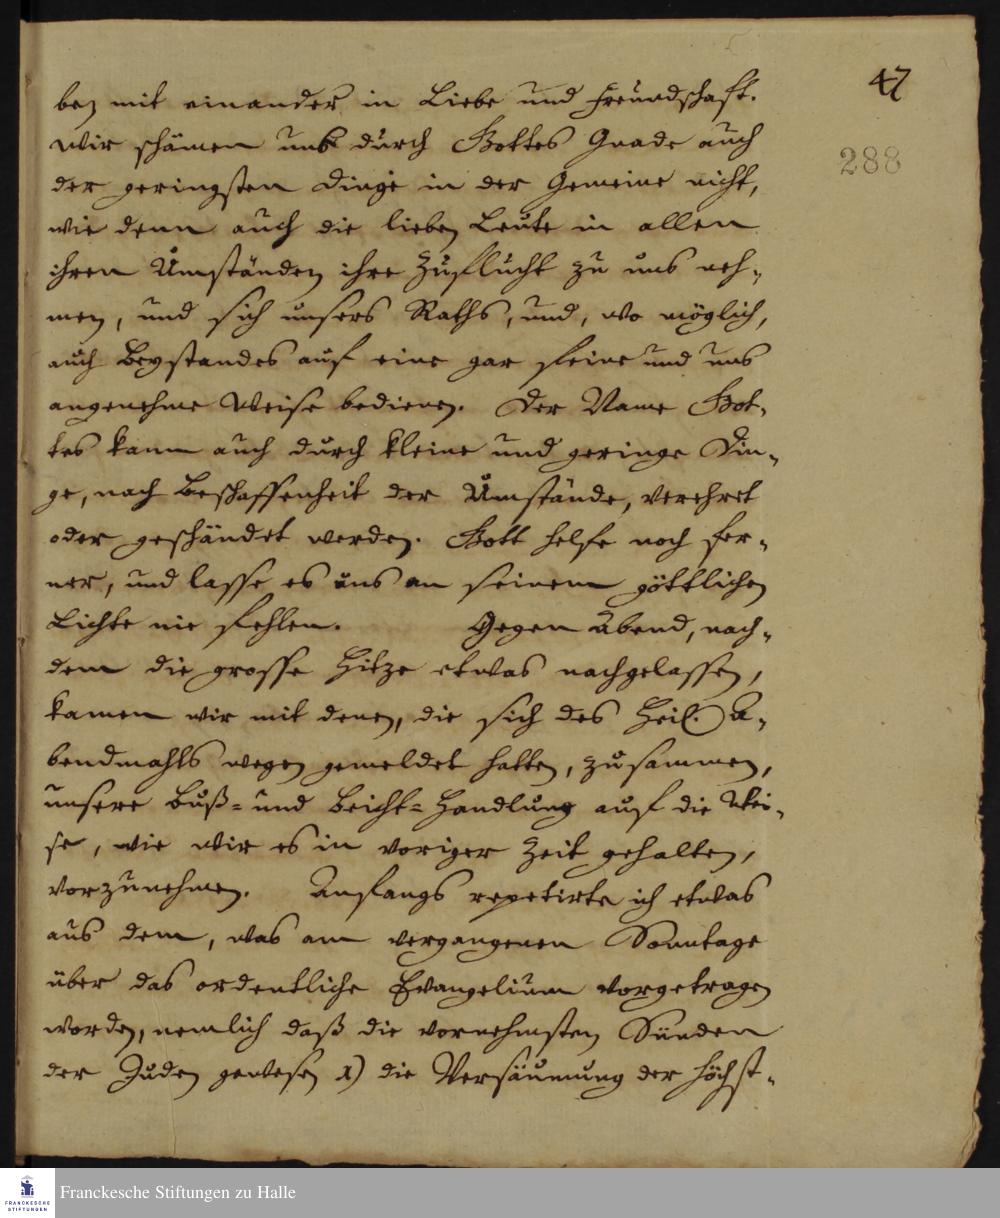 47
288
ben mit einander in Liebe und Freundschaft.
Wir schämen uns durch Gottes Gnade auch
der geringsten Dinge in der Gemeine nicht,
wie denn auch die lieben Leute in allen
ihren Umständen ihre Zuflucht zu uns neh-
men, und sich unsers Raths, und, wo möglich,
auch Beystandes auf eine gar feine und uns
angenehme Weise bedienen. Der Name Got-
tes kann auch durch kleine und geringe Din-
ge, nach Beschaffenheit der Umstände, verehret
oder geschändet werden. Gott helfe noch fer-
ner, und lasse es uns an seinem göttlichen
Lichte nie fehlen. Gegen Abend, nach-
dem die grosse Hitze etwas nachgelassen,
kamen wir mit denen, die sich des Heil. A-
bendmahls wegen gemeldet hatten, zusammen,
unsere Buß- und Beicht-Handlung auf die Wei-
se, wie wir es in voriger Zeit gehalten,
vorzunehmen. Anfangs repetirte ich etwas
aus dem, was am vergangenen Sonntage
über das ordentliche Evangelium vorgetragen
worden, nemlich daß die vornehmsten Sünden
der Juden gewesen 1) die Versäumung der höchst-
FRANCKESCHE
STIFTUNGEN
Franckesche Stiftungen zu Halle